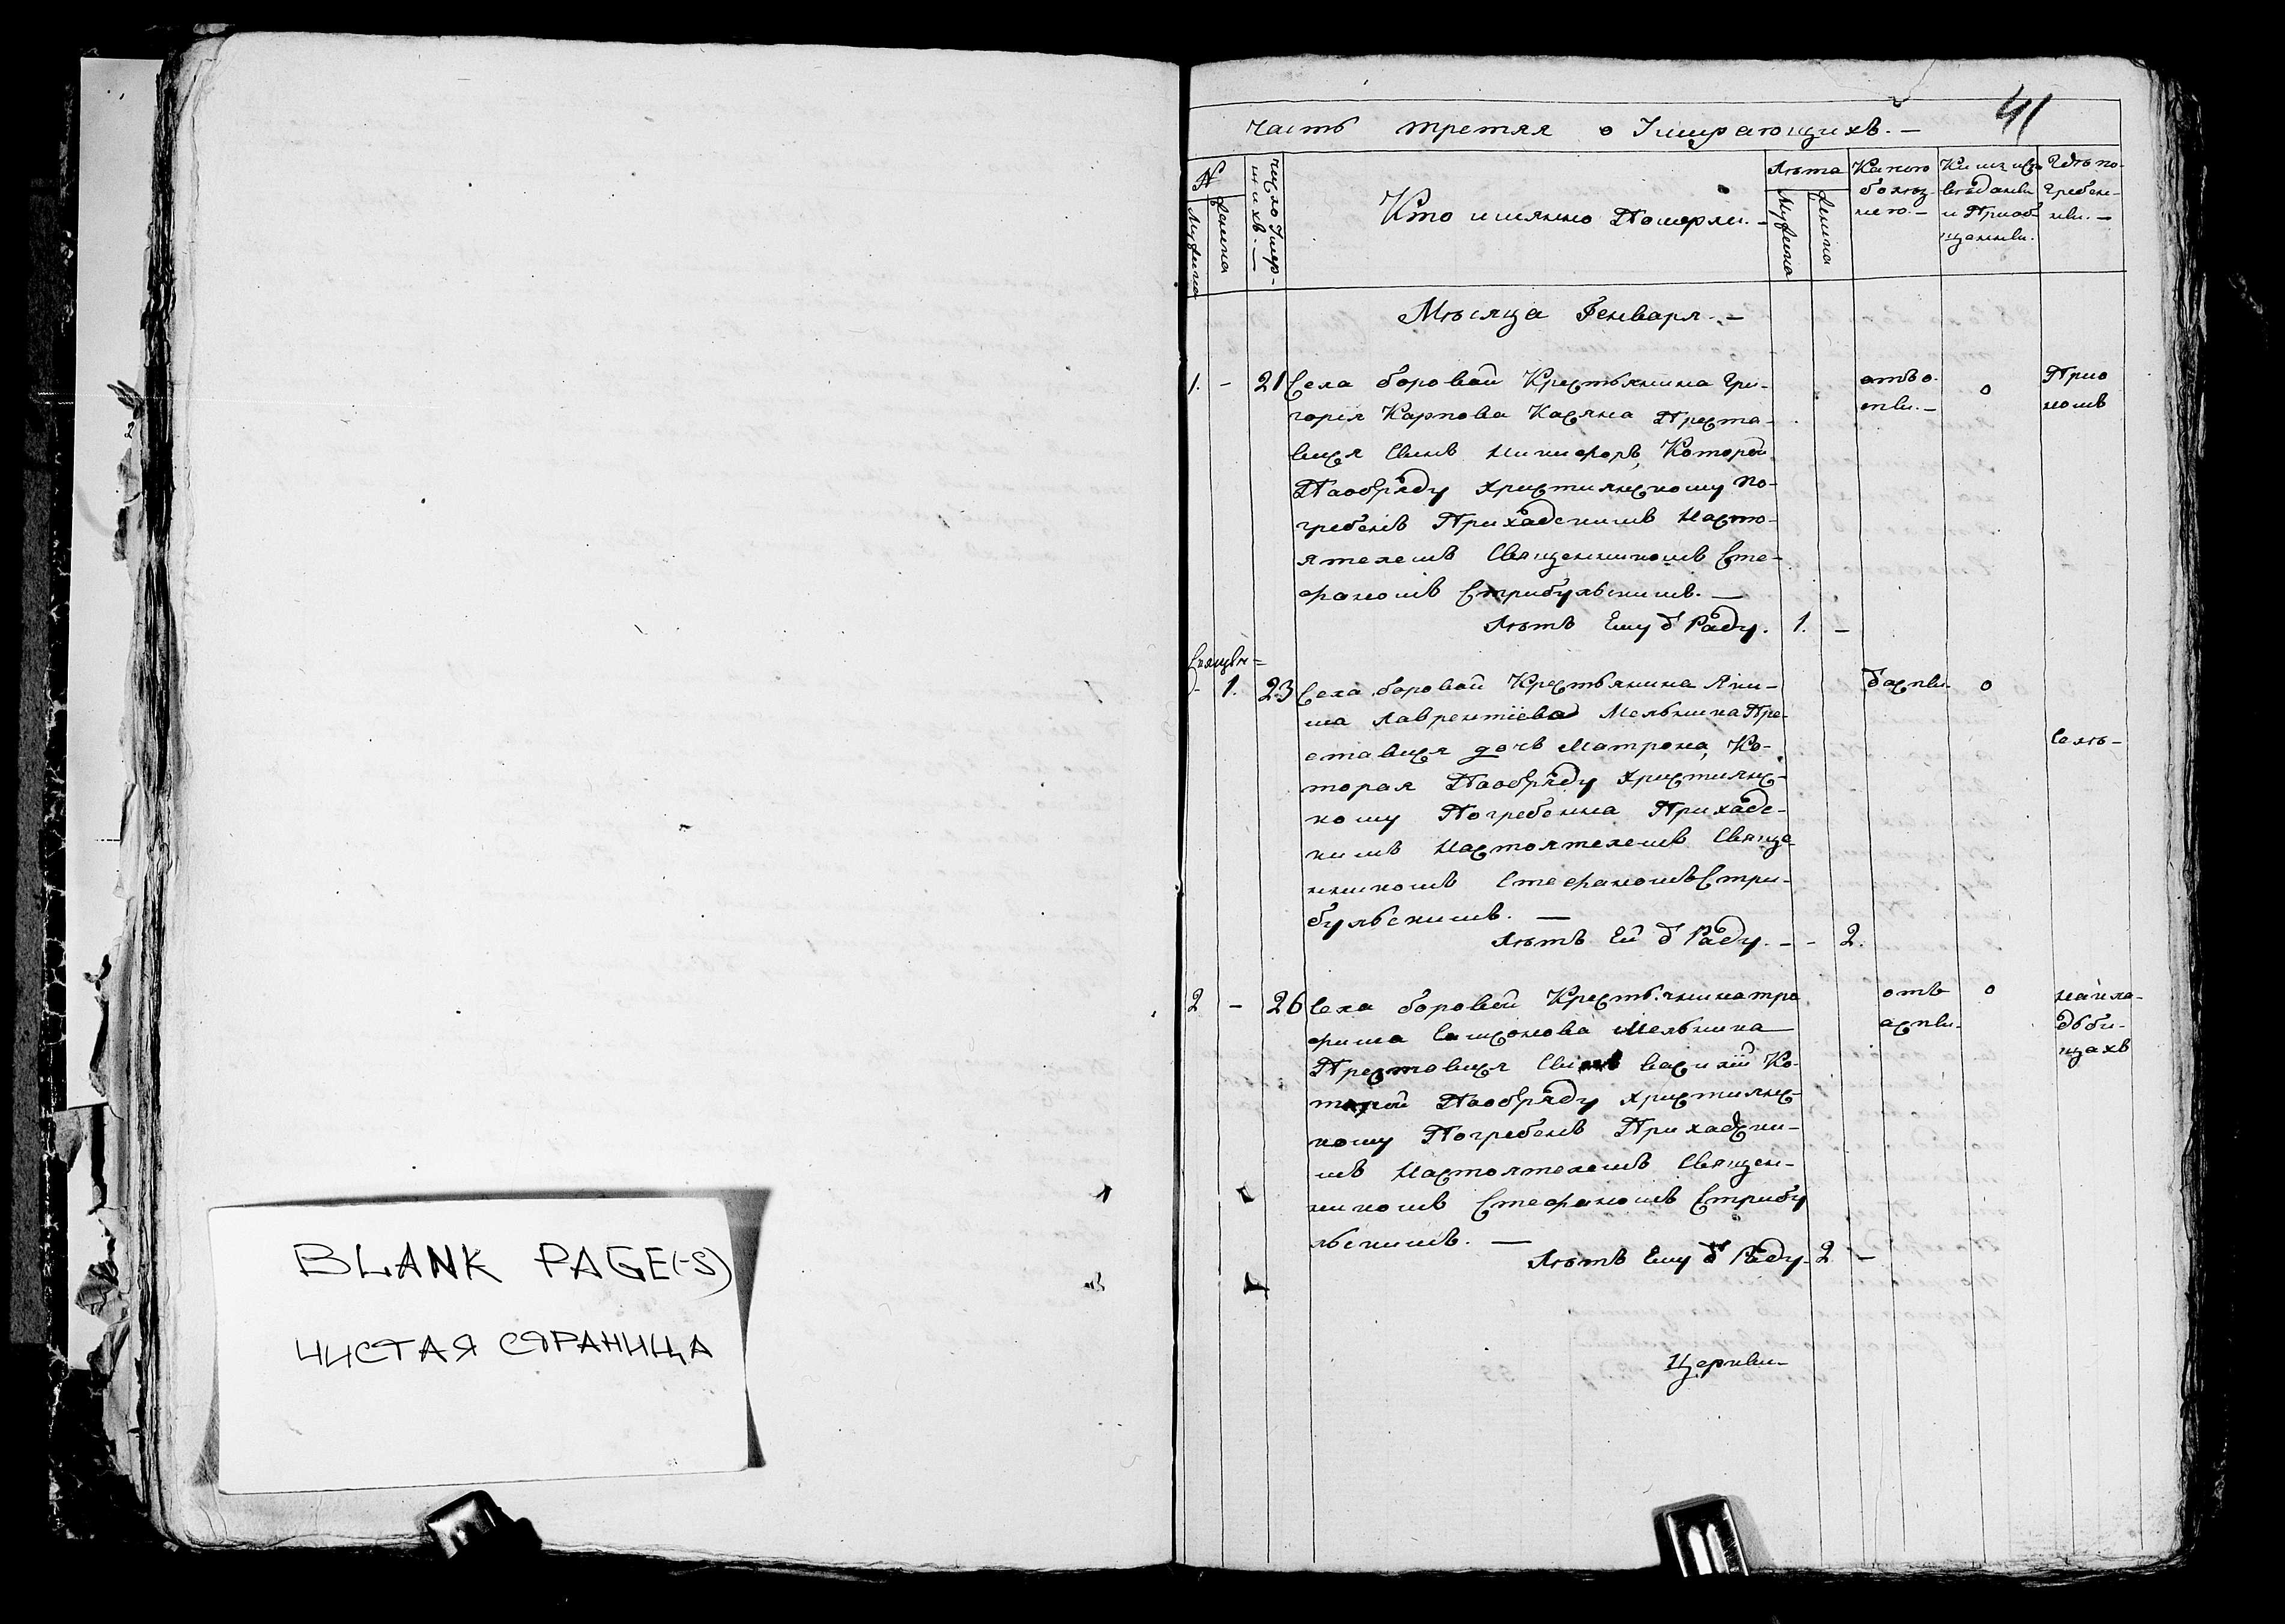 BLANK PAGE(-S)
ЧИСТАЯ СТРАНИЦА
41
Часть третяя о Умирающихъ. —
№
Мужеска
Женска
Число Умер-
шихъ. —
Кто имянно Померли. —
Лѣта
Мужеска
Женска
Какою
болѣз-
нею. —
Кѣмъ испо
вѣданы
и Приоб-
щенны.
Гдѣ по-
гребен-
ны. —
Мѣсяца Генваря. —
1. - 21 Села боровой Крестьянина Гри-
горія Карпова Касяна Преста-
вися Сынъ Никифоръ, Которой
Паобряду Християнскому по-
гребенъ Прихадскимъ Насто-
ятелемъ Священникомъ Сте-
фаномъ Стрибульскимъ. —
Лѣтъ Ему ѿ Раду. 1. —
отъ о-
спы. —
0
При
номъ
- 1. 23 Села боровой Крестьянина Яки-
ма Лаврентіева Мельника Пре-
ставися дочь Матрона, Ко-
торая Паобряду Християнс-
кому Погребенна Прихадс-
кимъ Настоятелемъ Свяще-
нникомъ Стефаномъ Стри-
бульскимъ. —
Лѣтъ Ей ѿ Раду. — - 2.
ѿаспы.
0
Селѣ-
2 - 26 Села боровой Крестьянина тро
фима Самсонова Мельника
Преставися Сынъ василій Ко-
торой Паобряду Християнс-
кому Погребенъ Прихадски-
мъ Настоятелемъ Священ-
никомъ Стефаномъ Стрибу
льскимъ. —
Лѣтъ Ему ѿ Раду. 2 —
отъ
аспы.
0
накла-
дьби-
щахъ
Церквы-